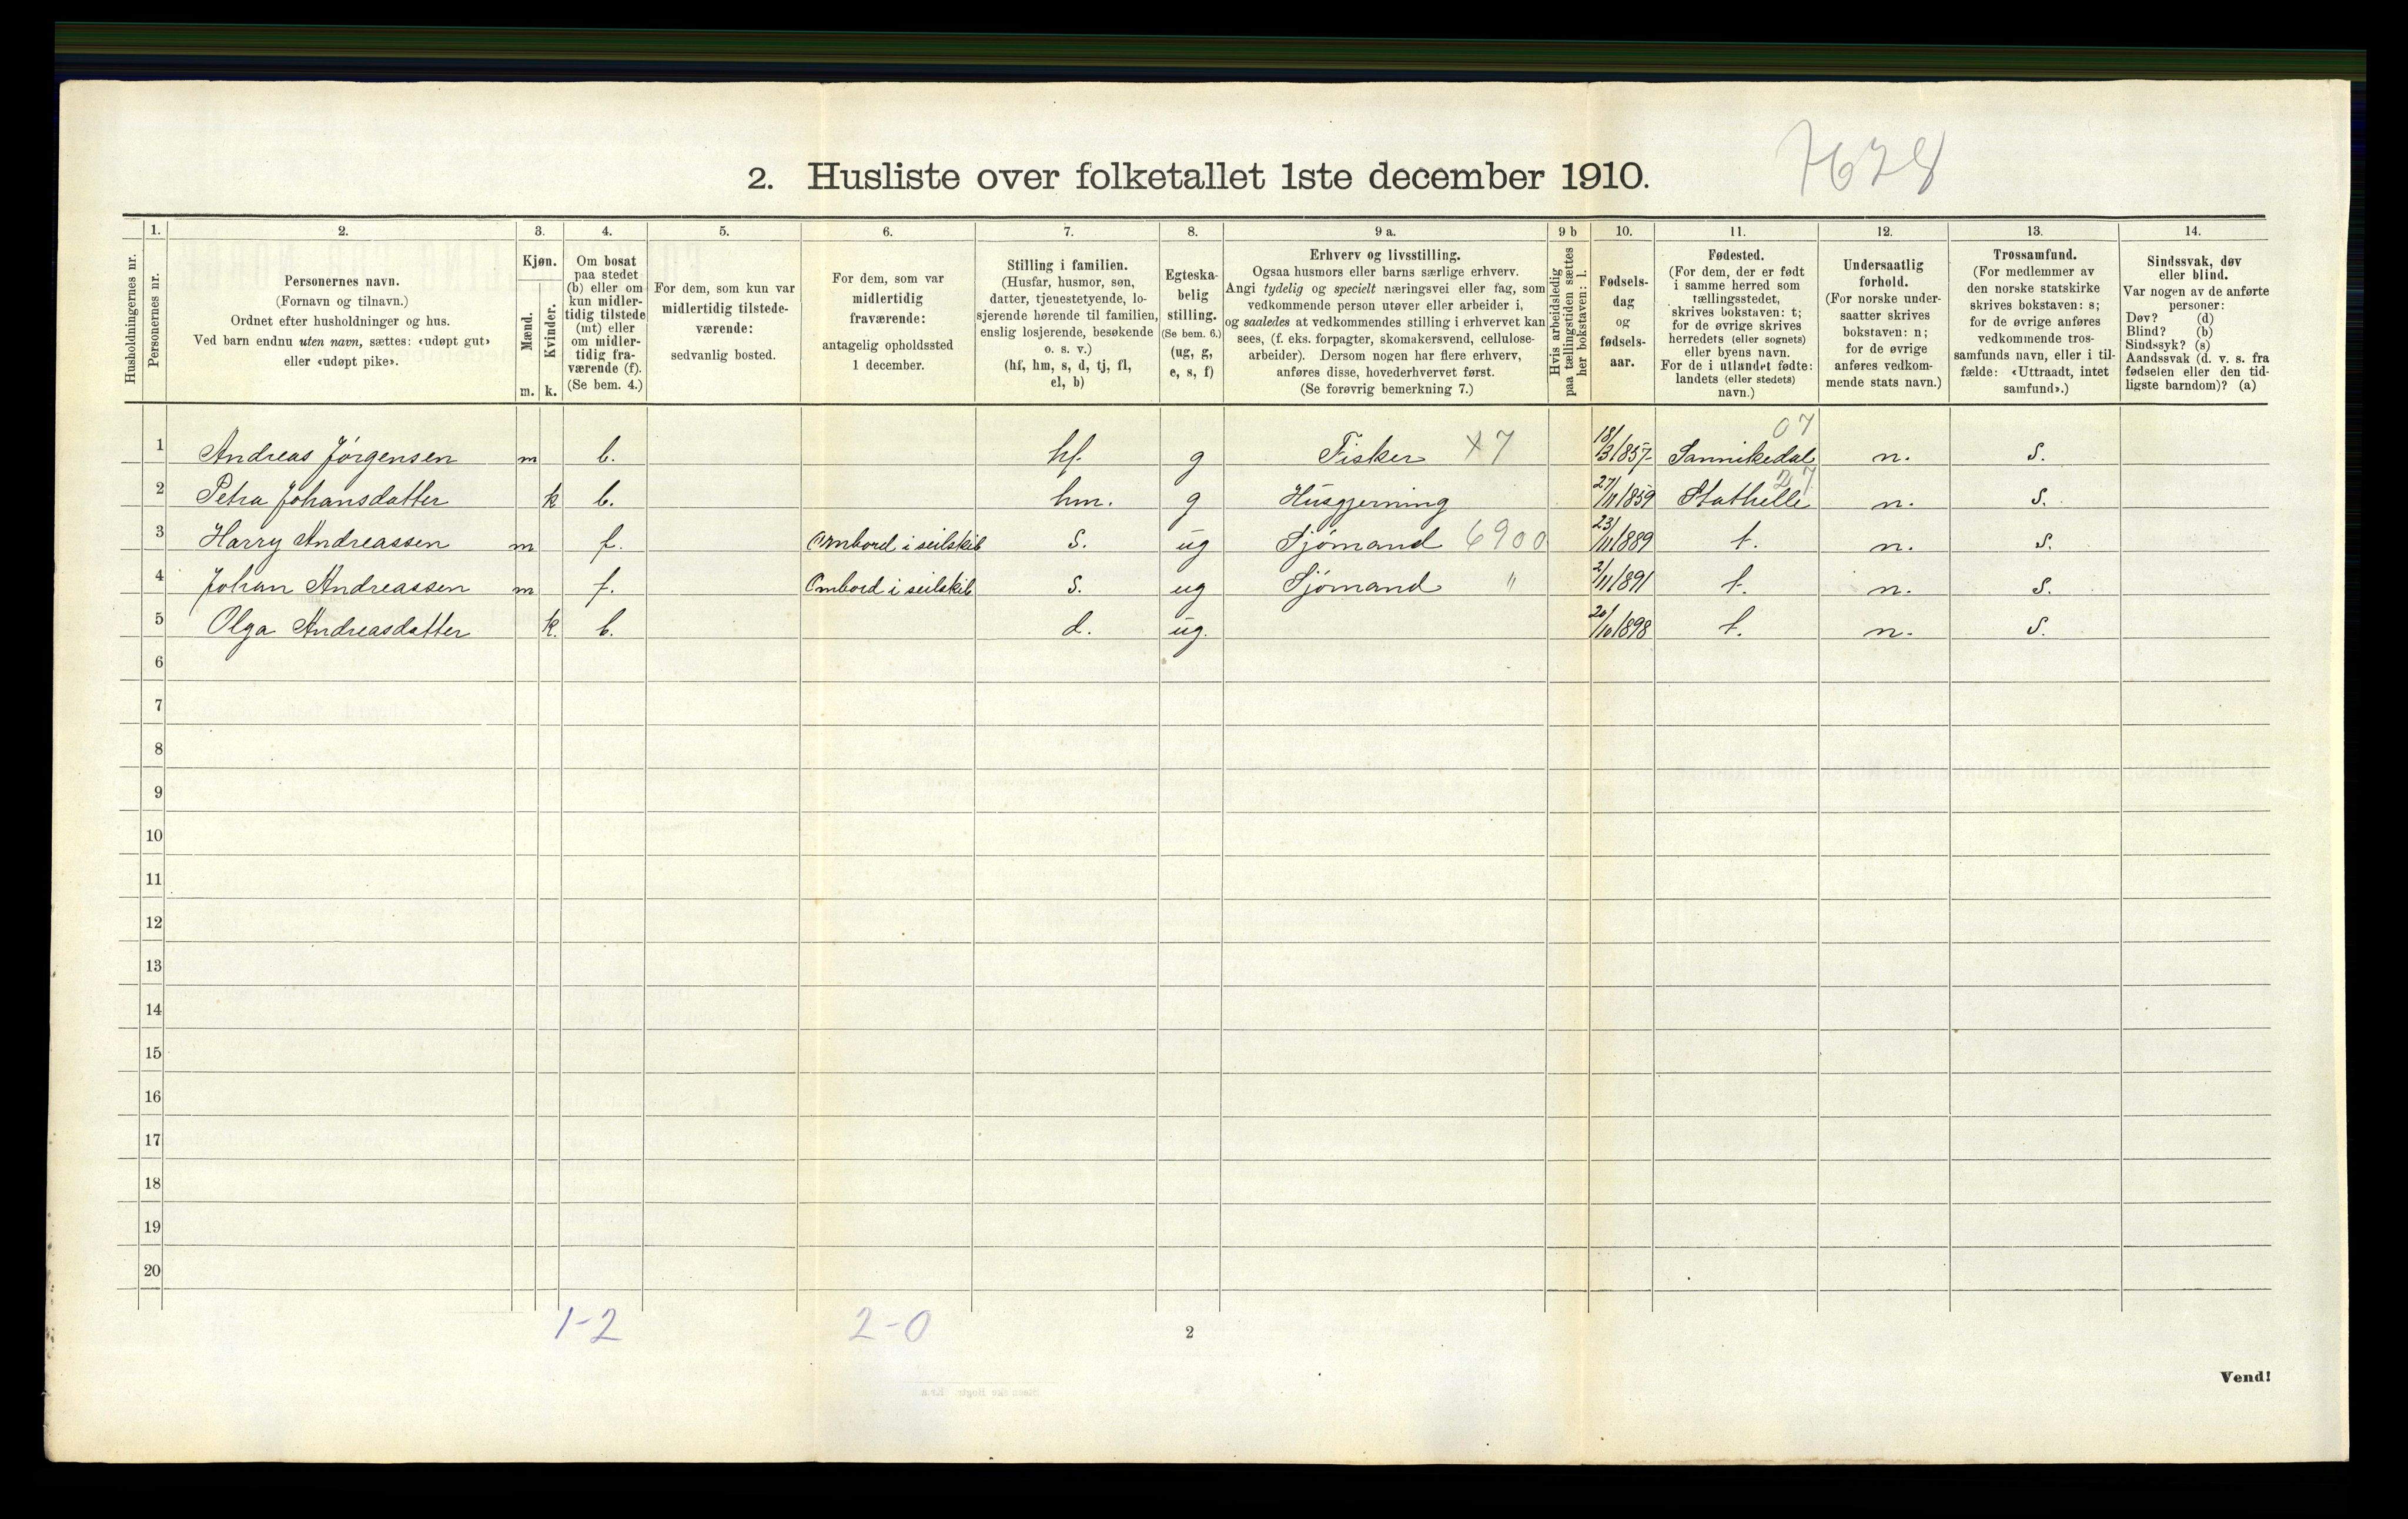 7628
2. Husliste over folketallet 1ste december 1910.
Husholdningernes nr.
1. Personernes nr.
2. Personernes navn. (Fornavn og tilnavn.) Ordnet efter husholdninger og hus. Ved barn endnu uten navn, sættes: «udøpt gut» eller «udøpt pike».
3. Kjøn. Mænd. m. Kvinder. k.
4. Om bosat paa stedet (b) eller om kun midlertidig tilstede (mt) eller om midlertidig fraværende (f). (Se bem. 4.)
5. For dem, som kun var midlertidig tilstedeværende: sedvanlig bosted.
6. For dem, som var midlertidig fraværende: antagelig opholdssted 1 december.
7. Stilling i familien. (Husfar, husmor, søn, datter, tjenestetyende, losjerende hørende til familien, enslig losjerende, besøkende o. s. v.) (hf, hm, s, d, tj, fl, el, b)
8. Egteskabelig stilling. (Se bem. 6.) (ug, g, e, s, f)
9 a. Erhverv og livsstilling. Ogsaa husmors eller barns særlige erhverv. Angi tydelig og specielt næringsvei eller fag, som vedkommende person utøver eller arbeider i, og saaledes at vedkommendes stilling i erhvervet kan sees, (f. eks. forpagter, skomakersvend, cellulosearbeider). Dersom nogen har flere erhverv, anføres disse, hovederhvervet først. (Se forøvrig bemerkning 7.)
9 b Hvis arbeidsledig paa tællingstiden sættes her bokstaven: l.
10. Fødselsdag og fødselsaar.
11. Fødested. (For dem, der er født i samme herred som tællingsstedet, skrives bokstaven: t; for de øvrige skrives herredets (eller sognets) eller byens navn. For de i utlandet fødte: landets (eller stedets) navn.)
12. Undersaatlig forhold. (For norske undersaatter skrives bokstaven: n; for de øvrige anføres vedkommende stats navn.)
13. Trossamfund. (For medlemmer av den norske statskirke skrives bokstaven: s; for de øvrige anføres vedkommende trossamfunds navn, eller i tilfælde: «Uttraadt, intet samfund».)
14. Sindssvak, døv eller blind. Var nogen av de anførte personer: Døv? (d) Blind? (b) Sindssyk? (s) Aandssvak (d. v. s. fra fødselen eller den tidligste barndom)? (a)
07
1 Andreas Jørgensen m b. hf. g Fisker X7 18/3 1857 Sannikedal n. S.
27
2 Petra Johansdatter k b. hm. g Husgjerning 27/11 1859 Stathelle n. S.
3 Harry Andreassen m f. Ombord i seilskib S. ug Sjømand 6900 23/11 1889 t. n. S.
4 Johan Andreassen m f. Ombord i seilskib S. ug Sjømand " 2/11 1891 t. n. S.
5 Olga Andreasdatter k. b. d. ug. 20/10 1898 t. n. S.
6
7
8
9
10
11
12
13
14
15
16
17
18
19
20
1-2 2-0
2
Vend!